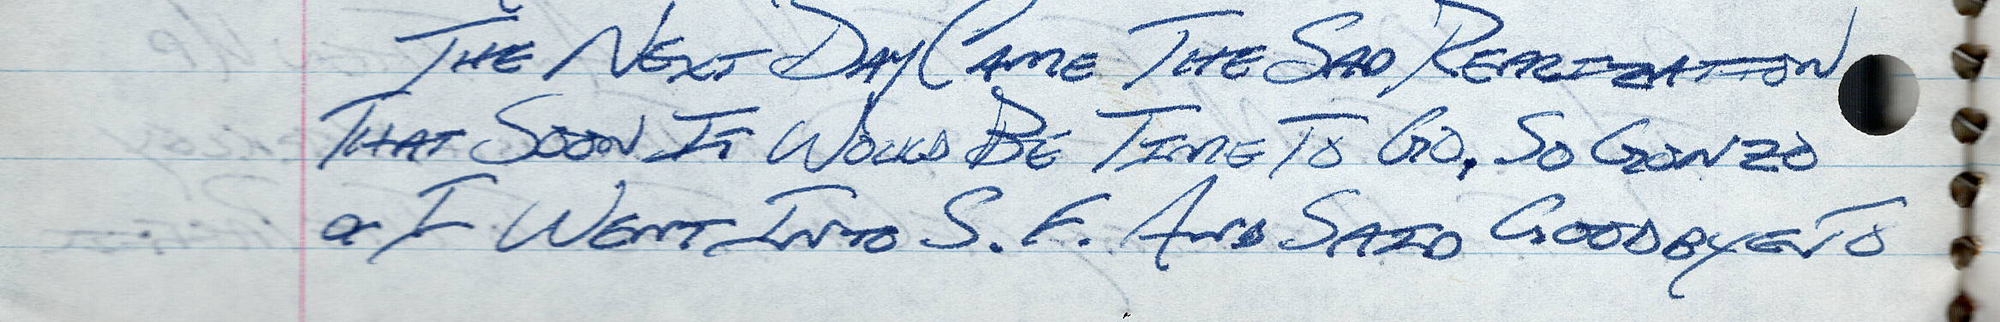 The Next Day Came The Sad Realization
That Soon It Would Be Time To Go, So Gonzo
& I Went Into S. F. And Said Goodbye To